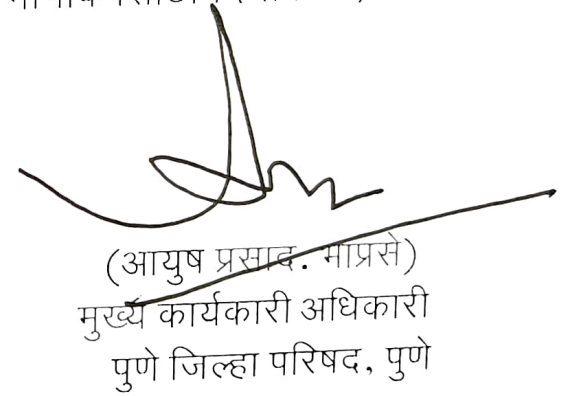 (आयुष प्रसाद. भाप्रसे)
मुख्य कार्यकारी अधिकारी
पुणे जिल्हा परिषद, पुणे